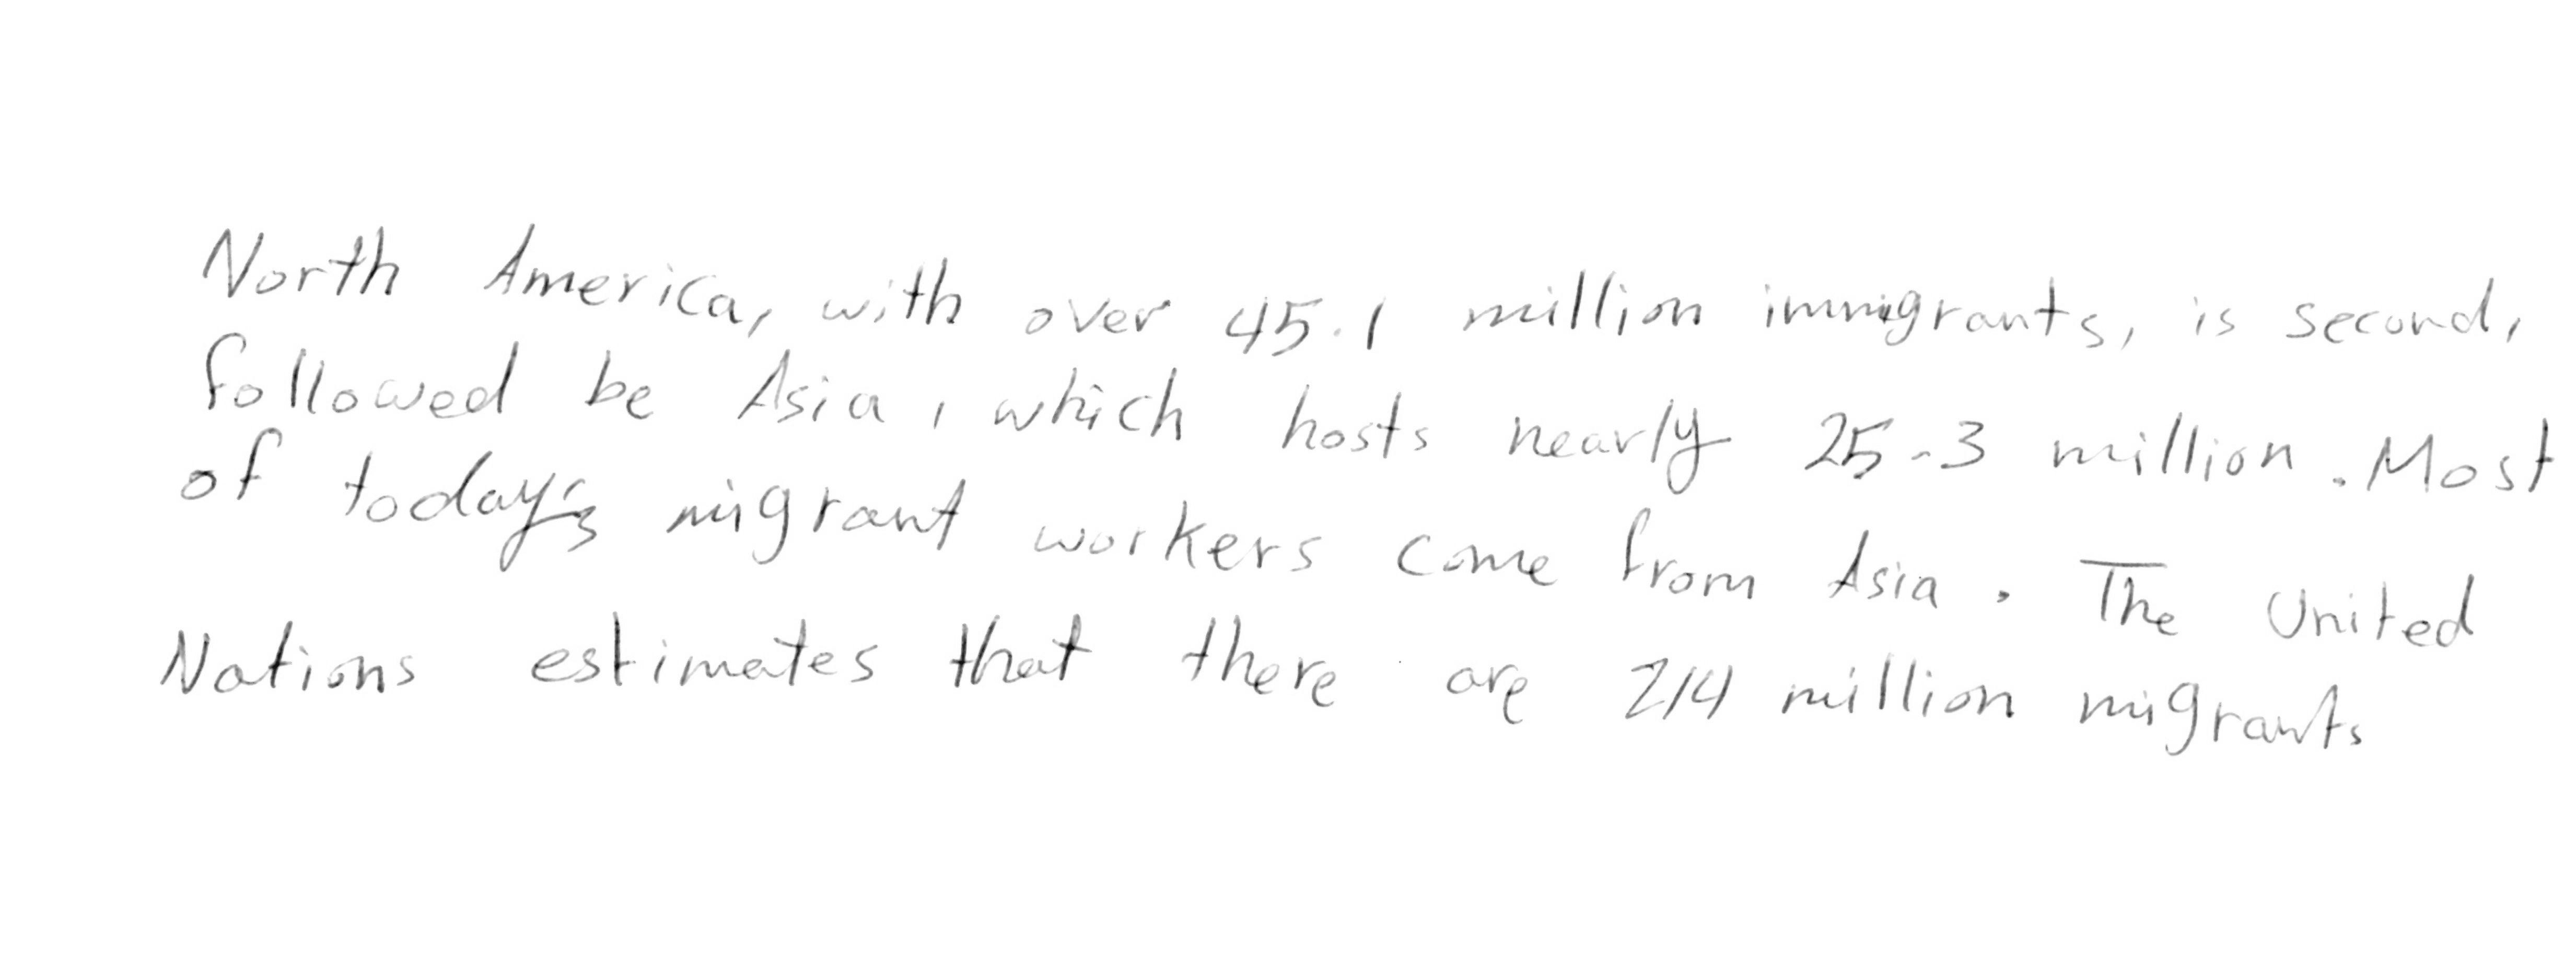 North America, with over 45.1 million immigrants, is second,
followed be Asia, which hosts nearly 25.3 million. Most
of today's migrant workers come from Asia. The United
Nations estimates that there are 214 million migrants